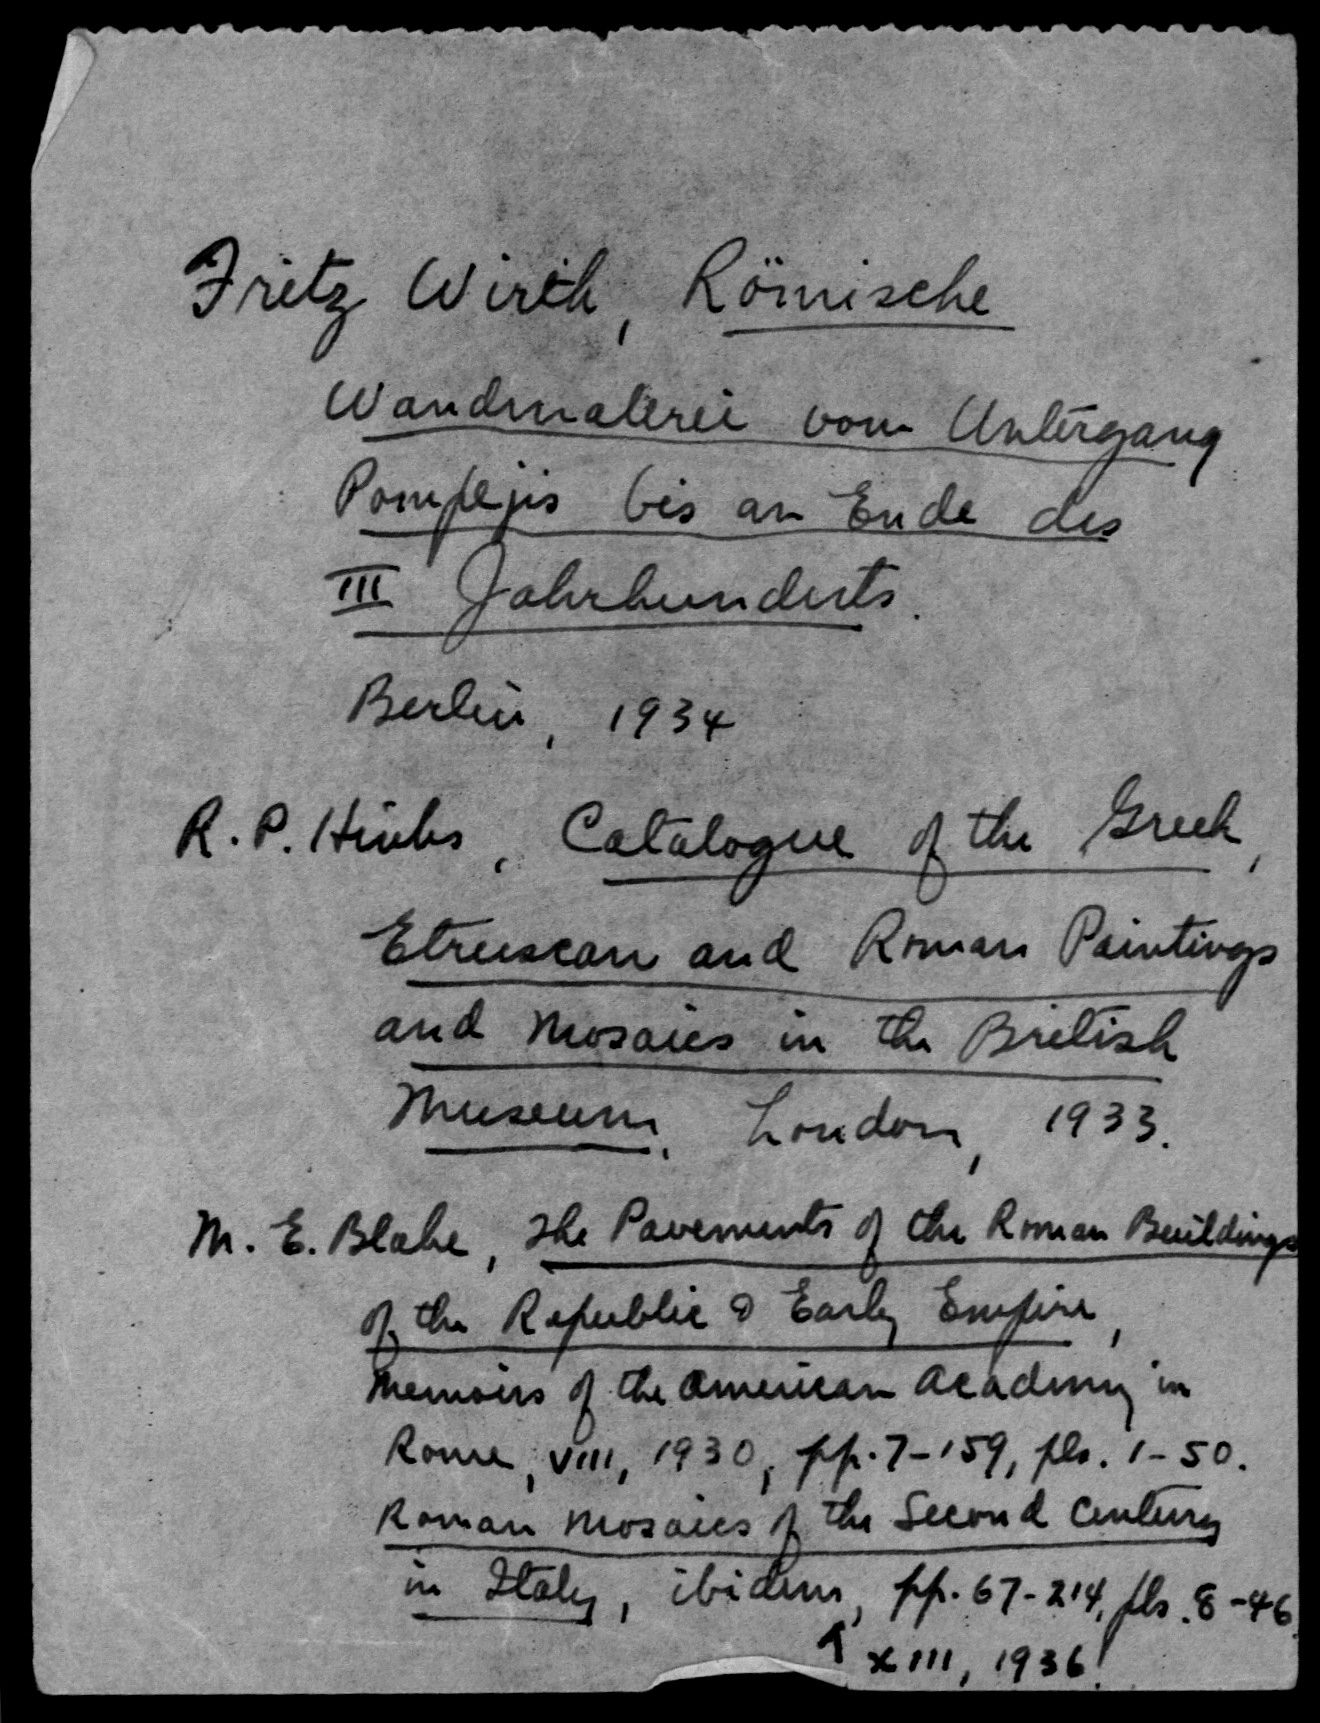 Fritz Wirth, Römische
Wandmalerei vom Untergang
Pompejis bis an Ende des
III Jahrhunderts.
Berlin, 1934
R. P. Hinks, Catalogue of the Greek,
Etruscan and Roman Paintings
and Mosaics in the British
Museum, London, 1933.
M. E. Blake, The Pavements of the Roman Buildings
of the Republic & Early Empire,
Memoirs of the American Academy in
Rome, VIII, 1930, pp. 7-159, pls. 1-50.
Roman Mosaics of the Second Century
in Italy, ibidem, pp. 67-214, pls. 8-46.
↑ XIII, 1936